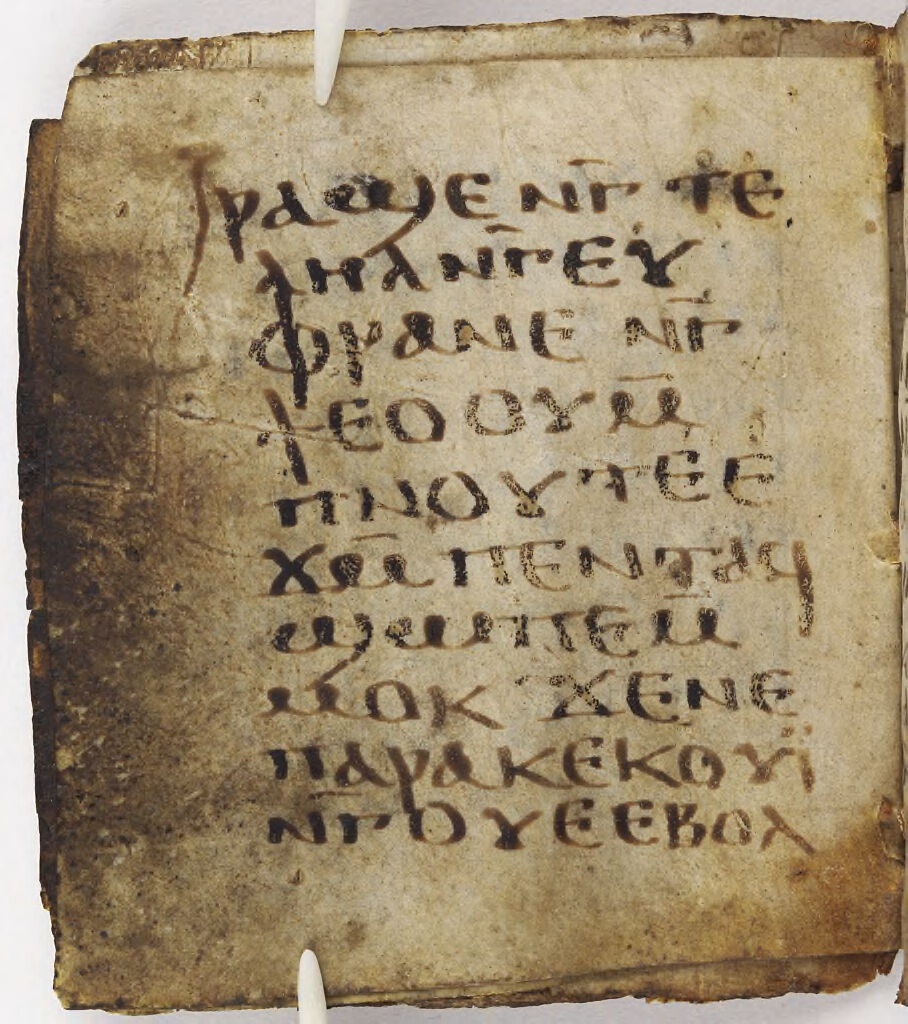 ⲣⲁϣⲉ ⲛ̅ⲅ ⲧⲉ
ⲗⲏⲗ ⲛ̅ⲅⲉⲩ
ⲫⲣⲁⲛⲉ ⲛ̅ⲅ
ϯⲉⲟⲟⲩ ⲙ̅
ⲡⲛⲟⲩⲧⲉ ⲉ
ϫⲙ̅ ⲡⲉⲛⲧⲁϥ
ϣⲱⲡⲉ ⲙ̅
ⲙⲟⲕ ϫⲉⲛⲉ
ⲡⲁⲣⲁⲕⲉⲕⲟⲩⲓ̈
ⲛ̅ⲅⲟⲩⲉ ⲉⲃⲟⲗ